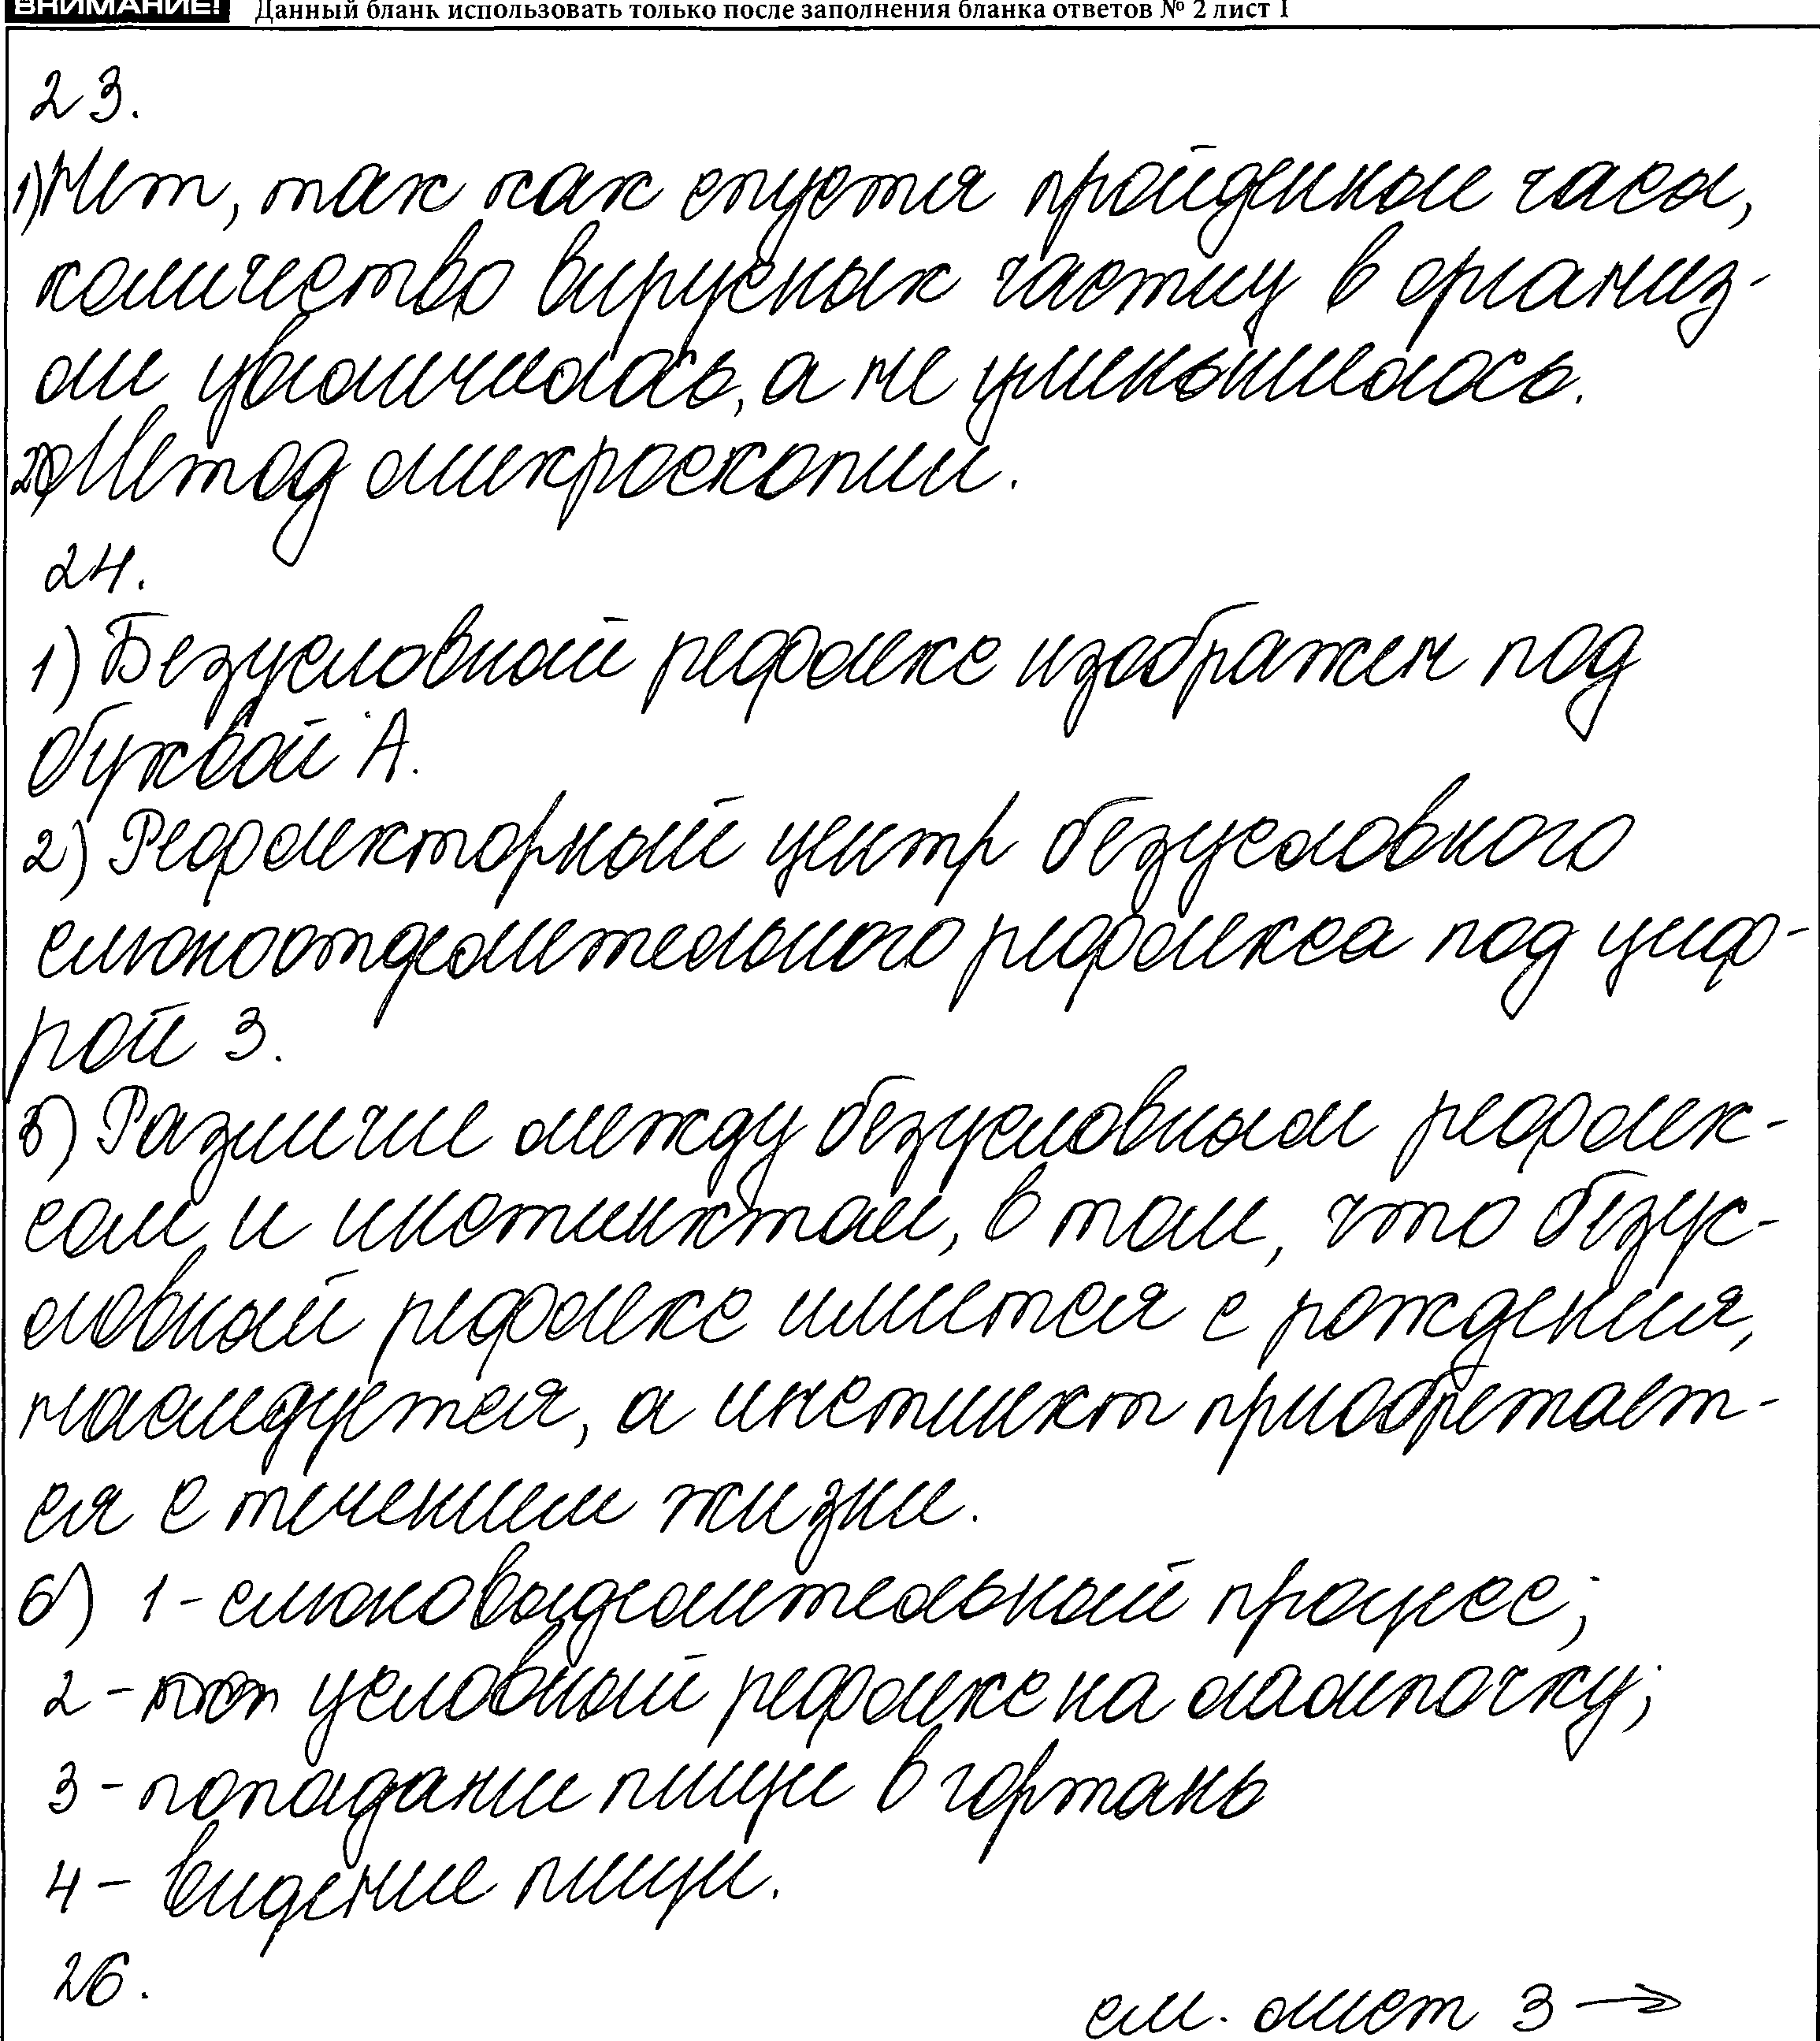 ВНИМАНИЕ! Данный бланк использовать только после заполнения бланка ответов № 2 лист 1
23.
1) Нет, так как спустя пройденные часы,
количество вирусных частиц в организ-
ме увеличилось, а не уменьшилось.
2) Метод микроскопии.
24.
1) Безусловный рефлекс изображен под
буквой А.
2) Рефлекторный центр безусловного
слюноотделительного рефлекса под циф-
рой 3.
5) Различие между безусловным рефлек-
сом и инстинктом, в том, что безус-
ловный рефлекс имеется с рождения,
наследуется, а инстинкт приобретает-
ся с течением жизни.
6) 1 - слюновыделительный процесс;
2 - условный рефлекс на лампочку;
3 - попадание пищи в гортань
4 - видение пищи.
26.
см. лист 3 →